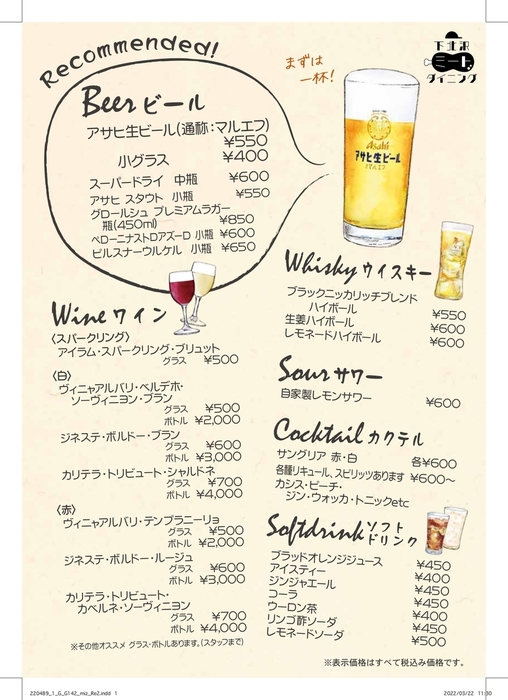 Recommended!
まずは
一杯!
下北沢
ミート
ダイニング
Beer ビール
アサヒ生ビール(通称:マルエフ)
¥550
小グラス ¥400
スーパードライ 中瓶 ¥600
アサヒ スタウト 小瓶 ¥550
グロールシュ プレミアムラガー
瓶(450ml) ¥850
ペローニナストロアズーロ 小瓶 ¥600
ピルスナーウルケル 小瓶 ¥650
Asahi
アサヒ生ビール
マルエフ
Wine ワイン
〈スパークリング〉
アイラム・スパークリング・ブリュット
グラス ¥500
〈白〉
ヴィニャアルバリ・ベルデホ・
ソーヴィニヨン・ブラン
グラス ¥500
ボトル ¥2,000
ジネステ・ボルドー・ブラン
グラス ¥600
ボトル ¥3,000
カリテラ・トリビュート・シャルドネ
グラス ¥700
ボトル ¥4,000
〈赤〉
ヴィニャアルバリ・テンプラニーリョ
グラス ¥500
ボトル ¥2,000
ジネステ・ボルドー・ルージュ
グラス ¥600
ボトル ¥3,000
カリテラ・トリビュート・
カベルネ・ソーヴィニヨン
グラス ¥700
ボトル ¥4,000
※その他オススメ グラス・ボトルあります。(スタッフまで)
Whisky ウイスキー
ブラックニッカリッチブレンド
ハイボール ¥550
生姜ハイボール ¥600
レモネードハイボール ¥600
Sour サワー
自家製レモンサワー ¥600
Cocktail カクテル
サングリア 赤・白 各¥600
各種リキュール、スピリッツあります ¥600〜
カシス・ピーチ・
ジン・ウォッカ・トニックetc
Softdrink ソフト
ドリンク
ブラッドオレンジジュース ¥450
アイスティー ¥400
ジンジャエール ¥450
コーラ ¥450
ウーロン茶 ¥400
リンゴ酢ソーダ ¥450
レモネードソーダ ¥500
※表示価格はすべて税込み価格です。
220489_1_G_G142_miz_Re2.indd 1
2022/03/22 11:30